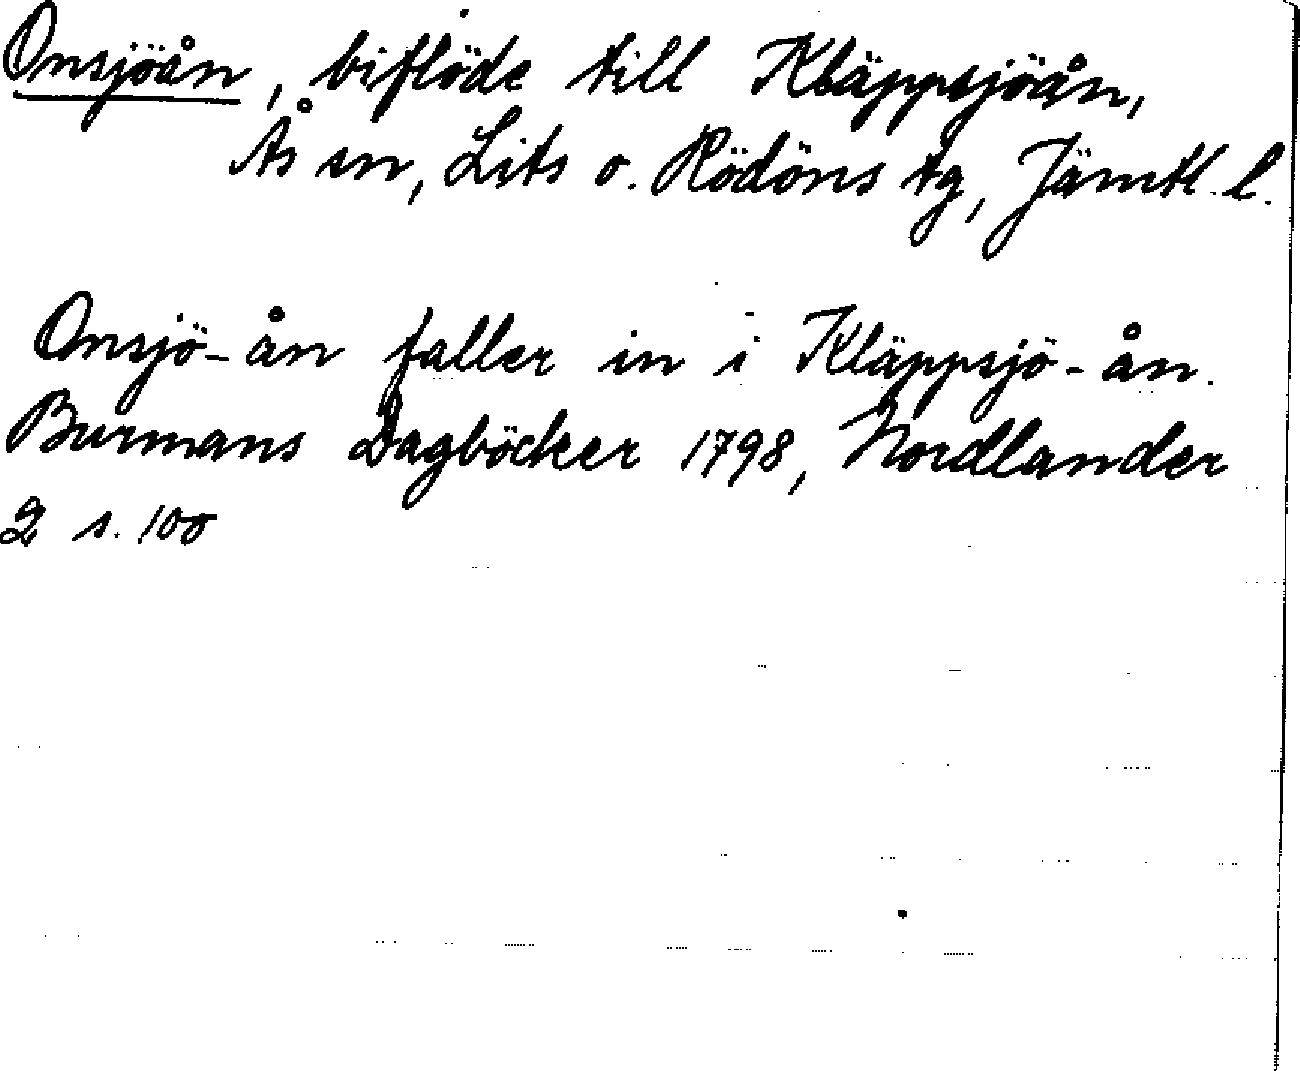 Onsjöån, biflöde till Kläppsjöån,
Ås sn, Lits o. Rödöns tg, Jämtl. l.
Onsjö-ån faller in i Kläppsjö-ån.
Burmans Dagböcker 1798, Nordlander
2 s. 100